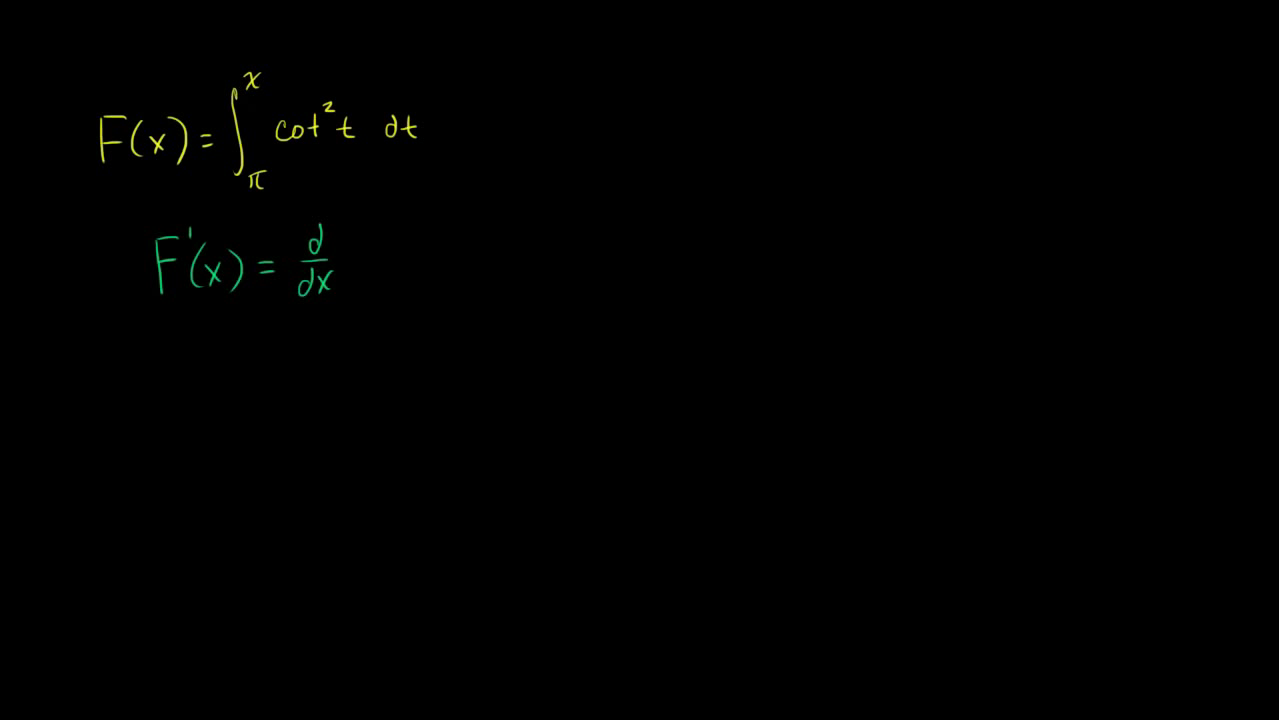 F(x) = ∫_π^x cot² t dt
F'(x) = d/dx